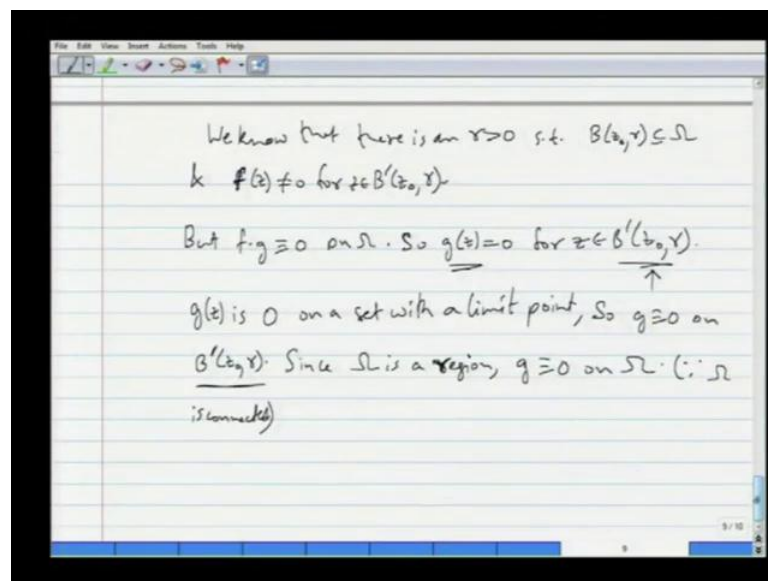 File Edit View Insert Actions Tools Help
We know that there is an r>0 s.t. B(z₀,r) ⊆ Ω
& f(z) ≠ 0 for z∈B'(z₀,r).
But f·g ≡ 0 on Ω. So g(z)=0 for z∈B'(z₀,r).
g(z) is 0 on a set with a limit point, So g≡0 on
B'(z₀,r). Since Ω is a region, g≡0 on Ω. (∵ Ω
is connected)
9/10
9